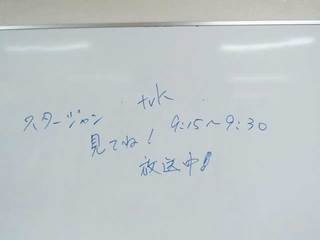 tvk
スタージャン 9:15~9:30
見てね!
放送中!